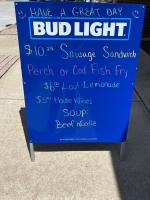 HAVE A GREAT DAY
BUD LIGHT
$10.25 Sausage Sandwich
Perch or Cod Fish Fry
$6.00 Loaf Lemonade
$5.00 House Wines
Soup:
Beef Noodle